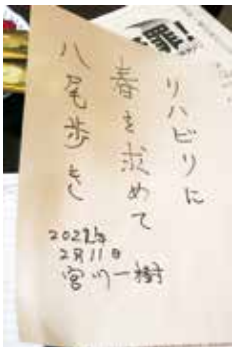 罪!
リハビリに
春を求めて
八尾歩き
2022年
2月11日
宮川一樹